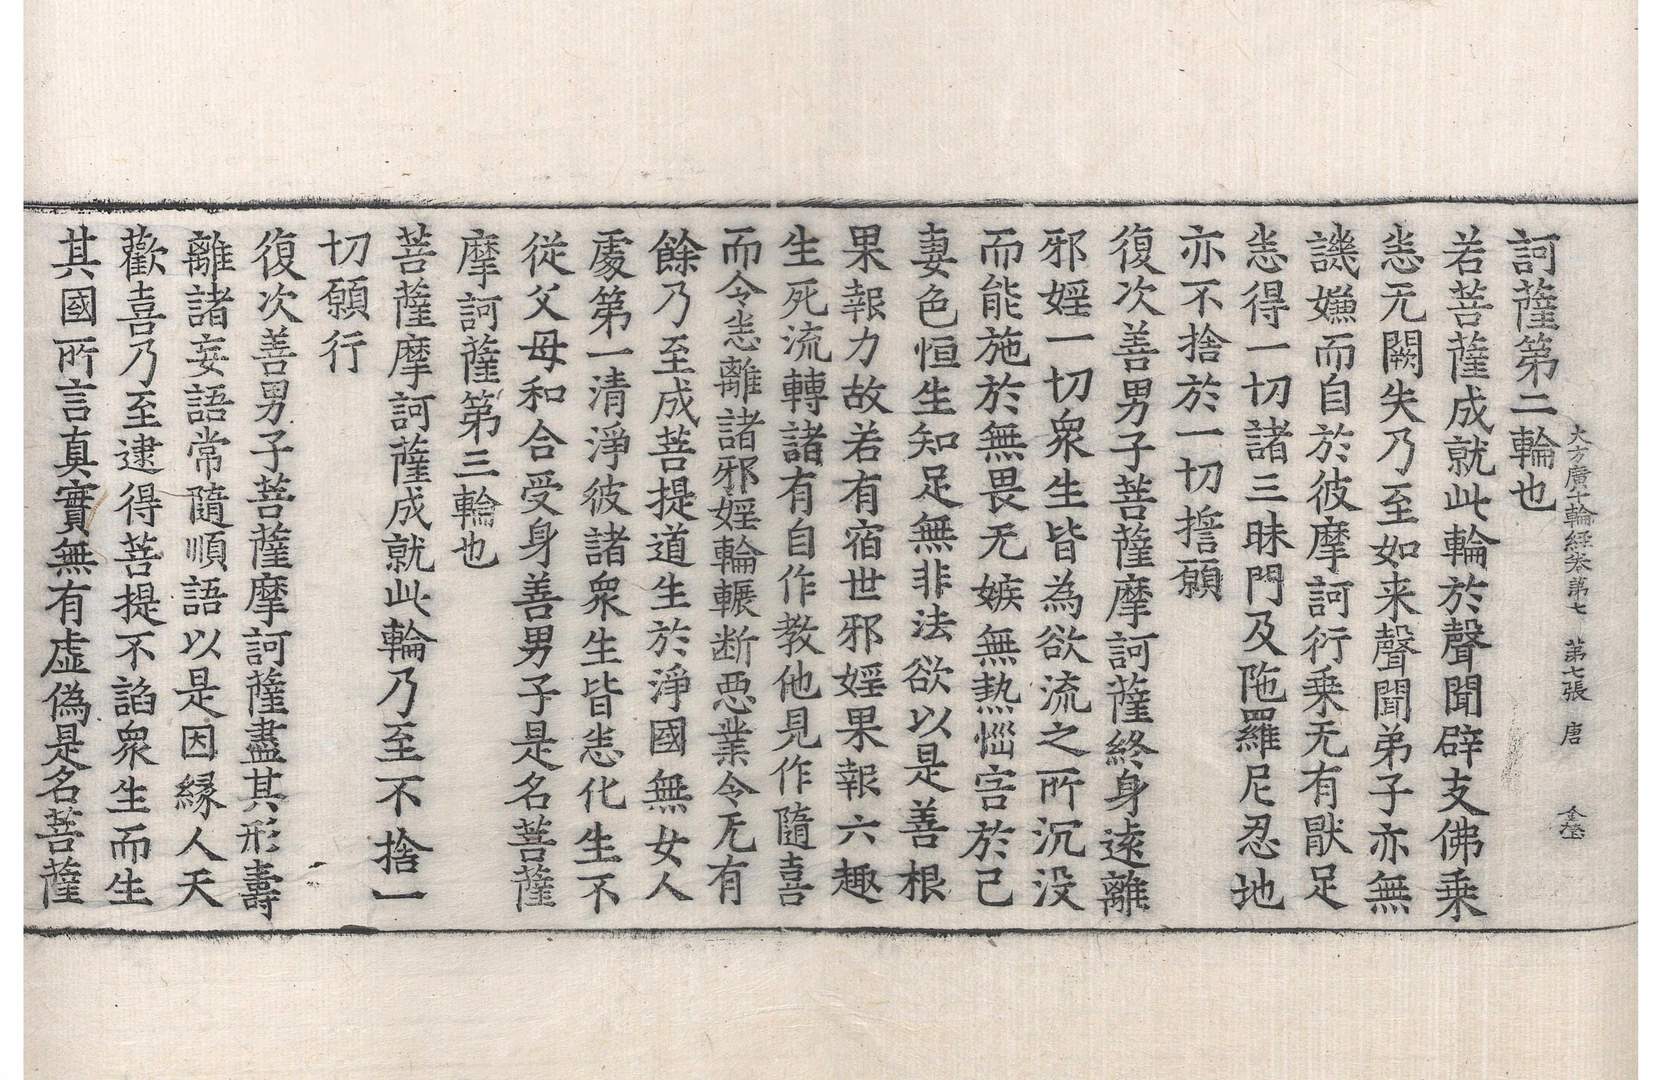 大方廣十輪経巻第七　第七張　唐
訶薩第二輪也
若菩薩成就此輪於聲聞辟支佛乗
恙无闕失乃至如来聲聞弟子亦無
譏嫌而自於彼摩訶衍乗无有猒足
恙得一切諸三昧門及陁羅尼忍地
亦不捨於一切擔願
復次善男子菩薩摩訶薩終身遠離
邪婬一切衆生皆為欲流之所沉没
而能施於無畏无嫉無熱惱害於己
妻色恒生知足無非法欲以是善根
果報力故若有宿世邪婬果報六趣
生死流轉諸有自作教他見作隨喜
而令恙離諸邪婬輪輾断悪業令无有
餘乃至成菩提道生於淨國無女人
處第一清淨彼諸衆生皆恙化生不
従父母和合受身善男子是名菩薩
摩訶薩第三輪也
菩薩摩訶薩成就此輪乃至不捨一
切願行
復次善男子菩薩摩訶薩盡其形壽
離諸妄語常隨順語以是因縁人天
歡喜乃至逮得菩提不諂衆生而生
其國所言真實無有虛偽是名菩薩